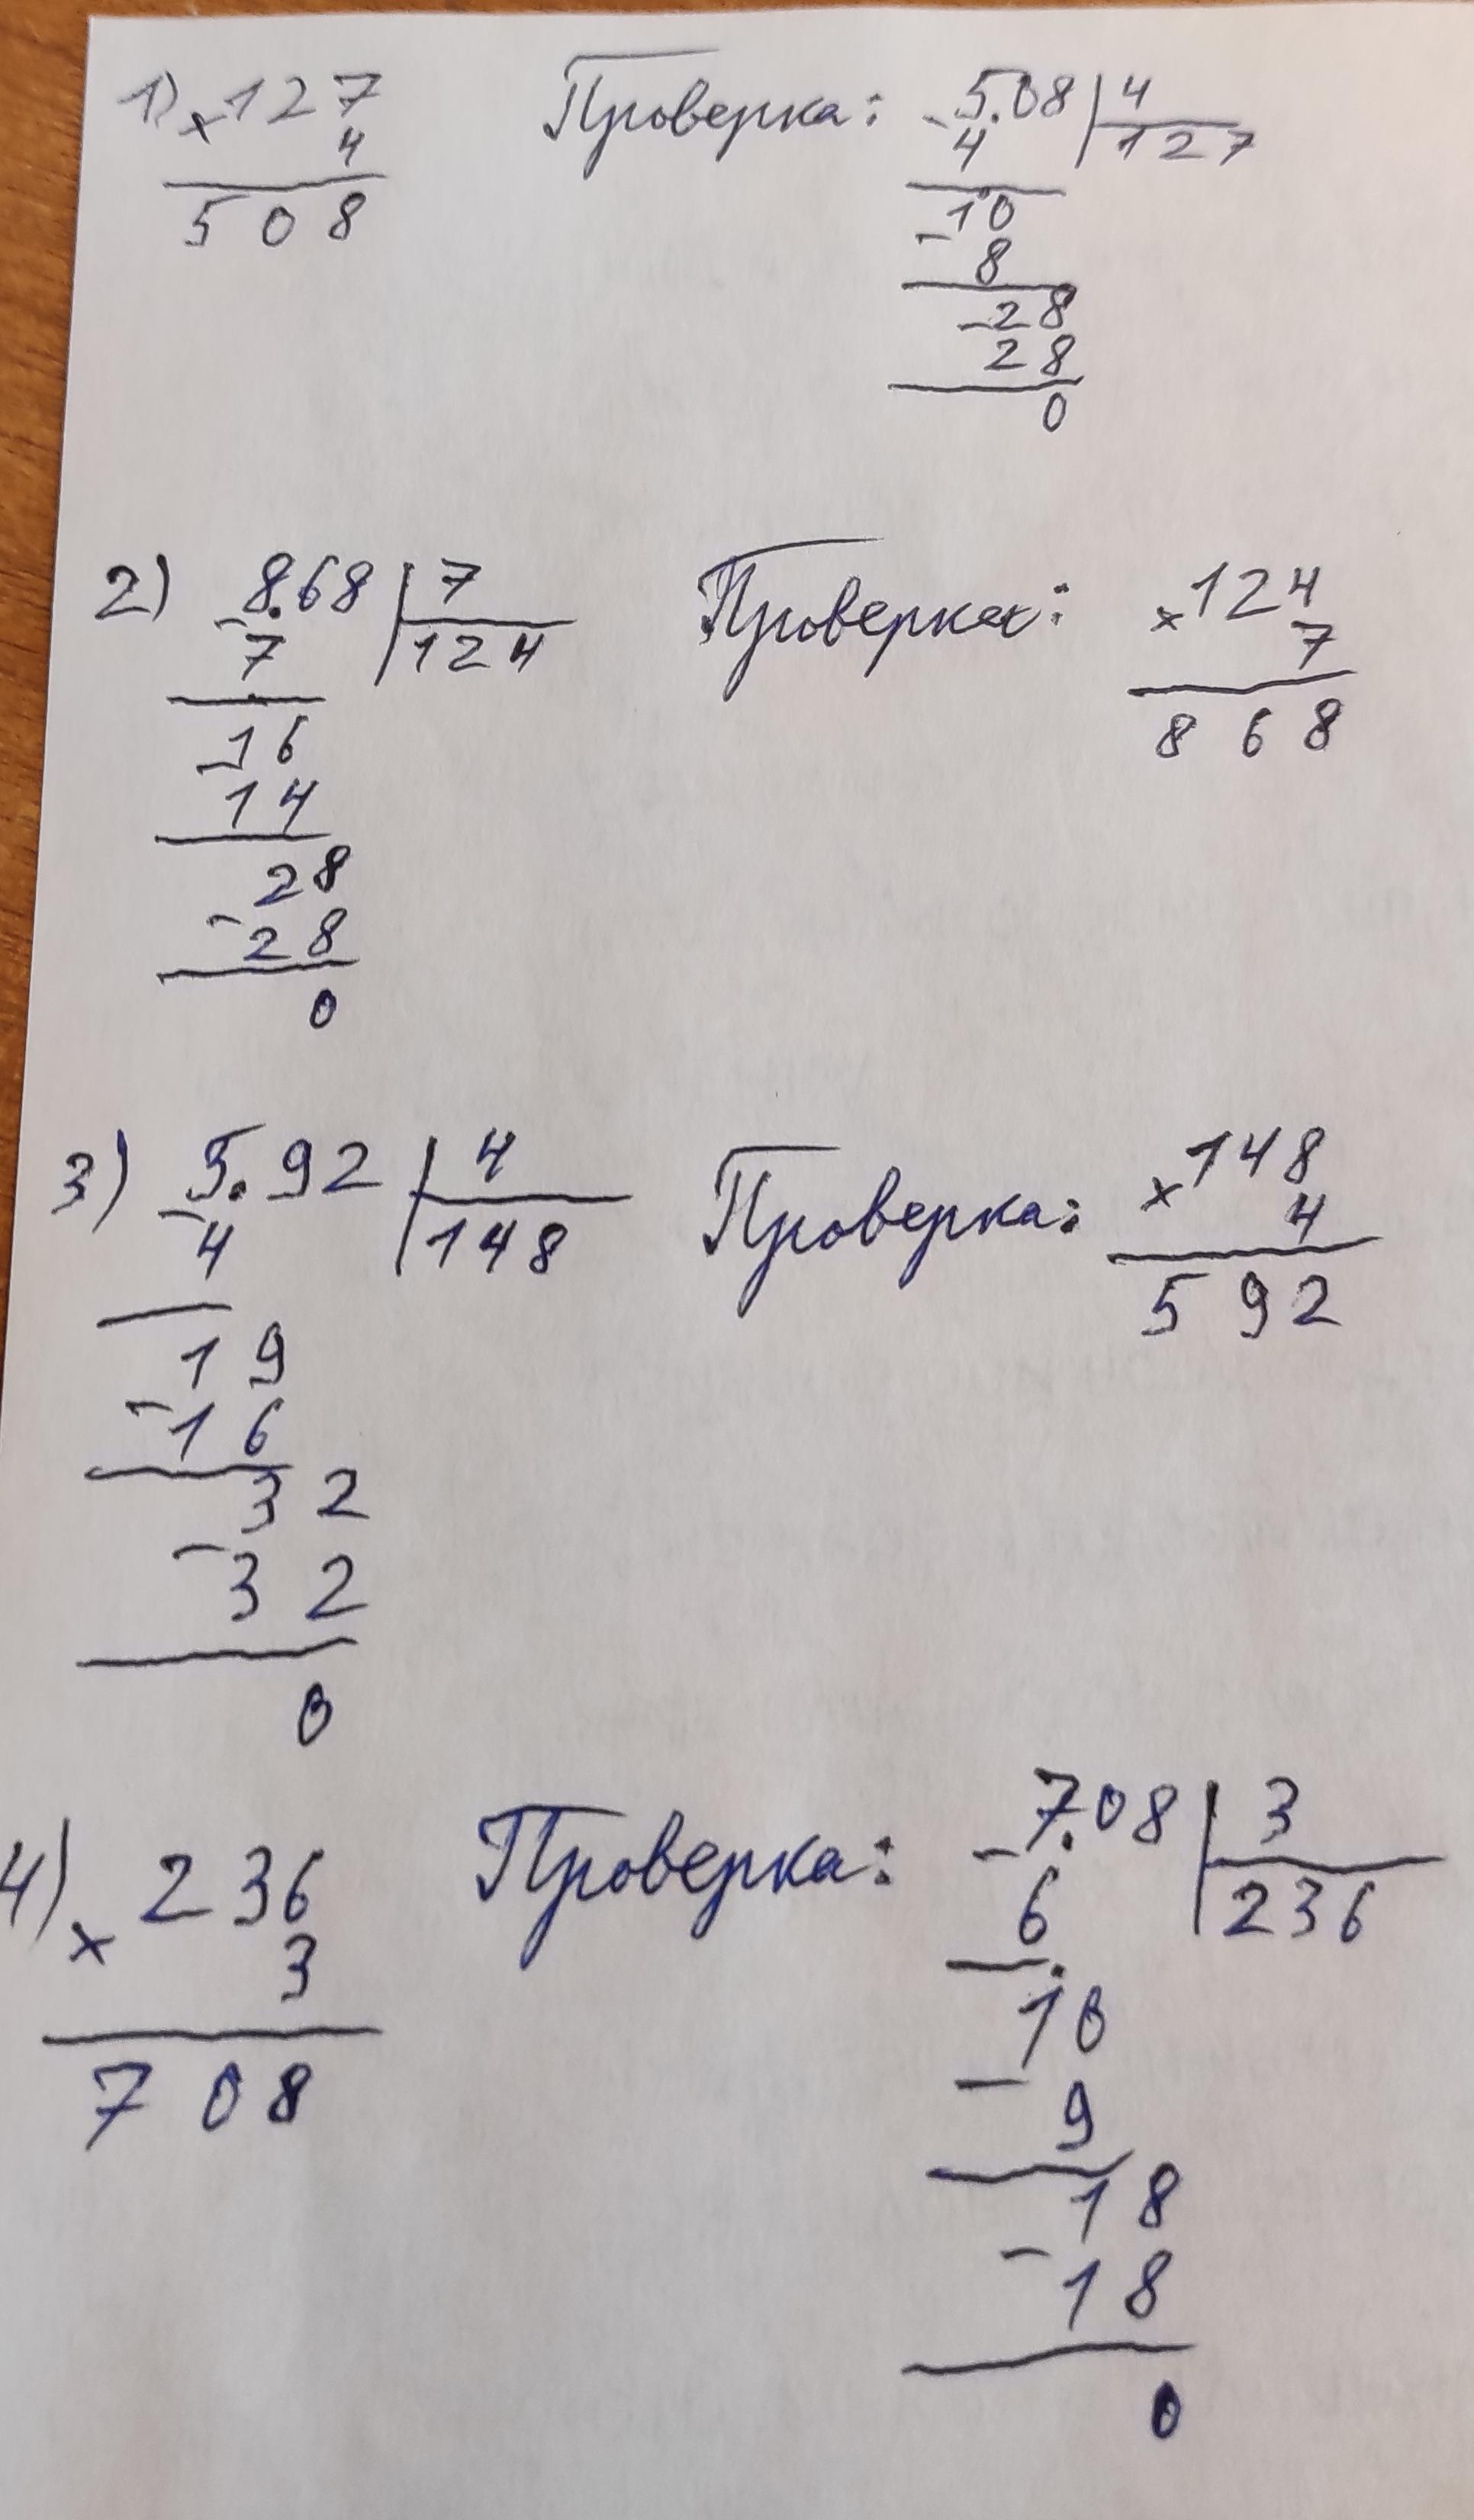 1) × 127 Проверка: - 5.08 | 4
4 4 127
508 - 10
8
- 28
28
0
2) - 8.68 | 7 Проверка: × 124
7 124 7
- 16 868
14
28
- 28
0
3) - 5.92 | 4 Проверка: × 148
4 148 4
19 592
- 16
32
- 32
0
4) × 236 Проверка: - 7.08 | 3
3 6 236
708 10
- 9
18
- 18
0